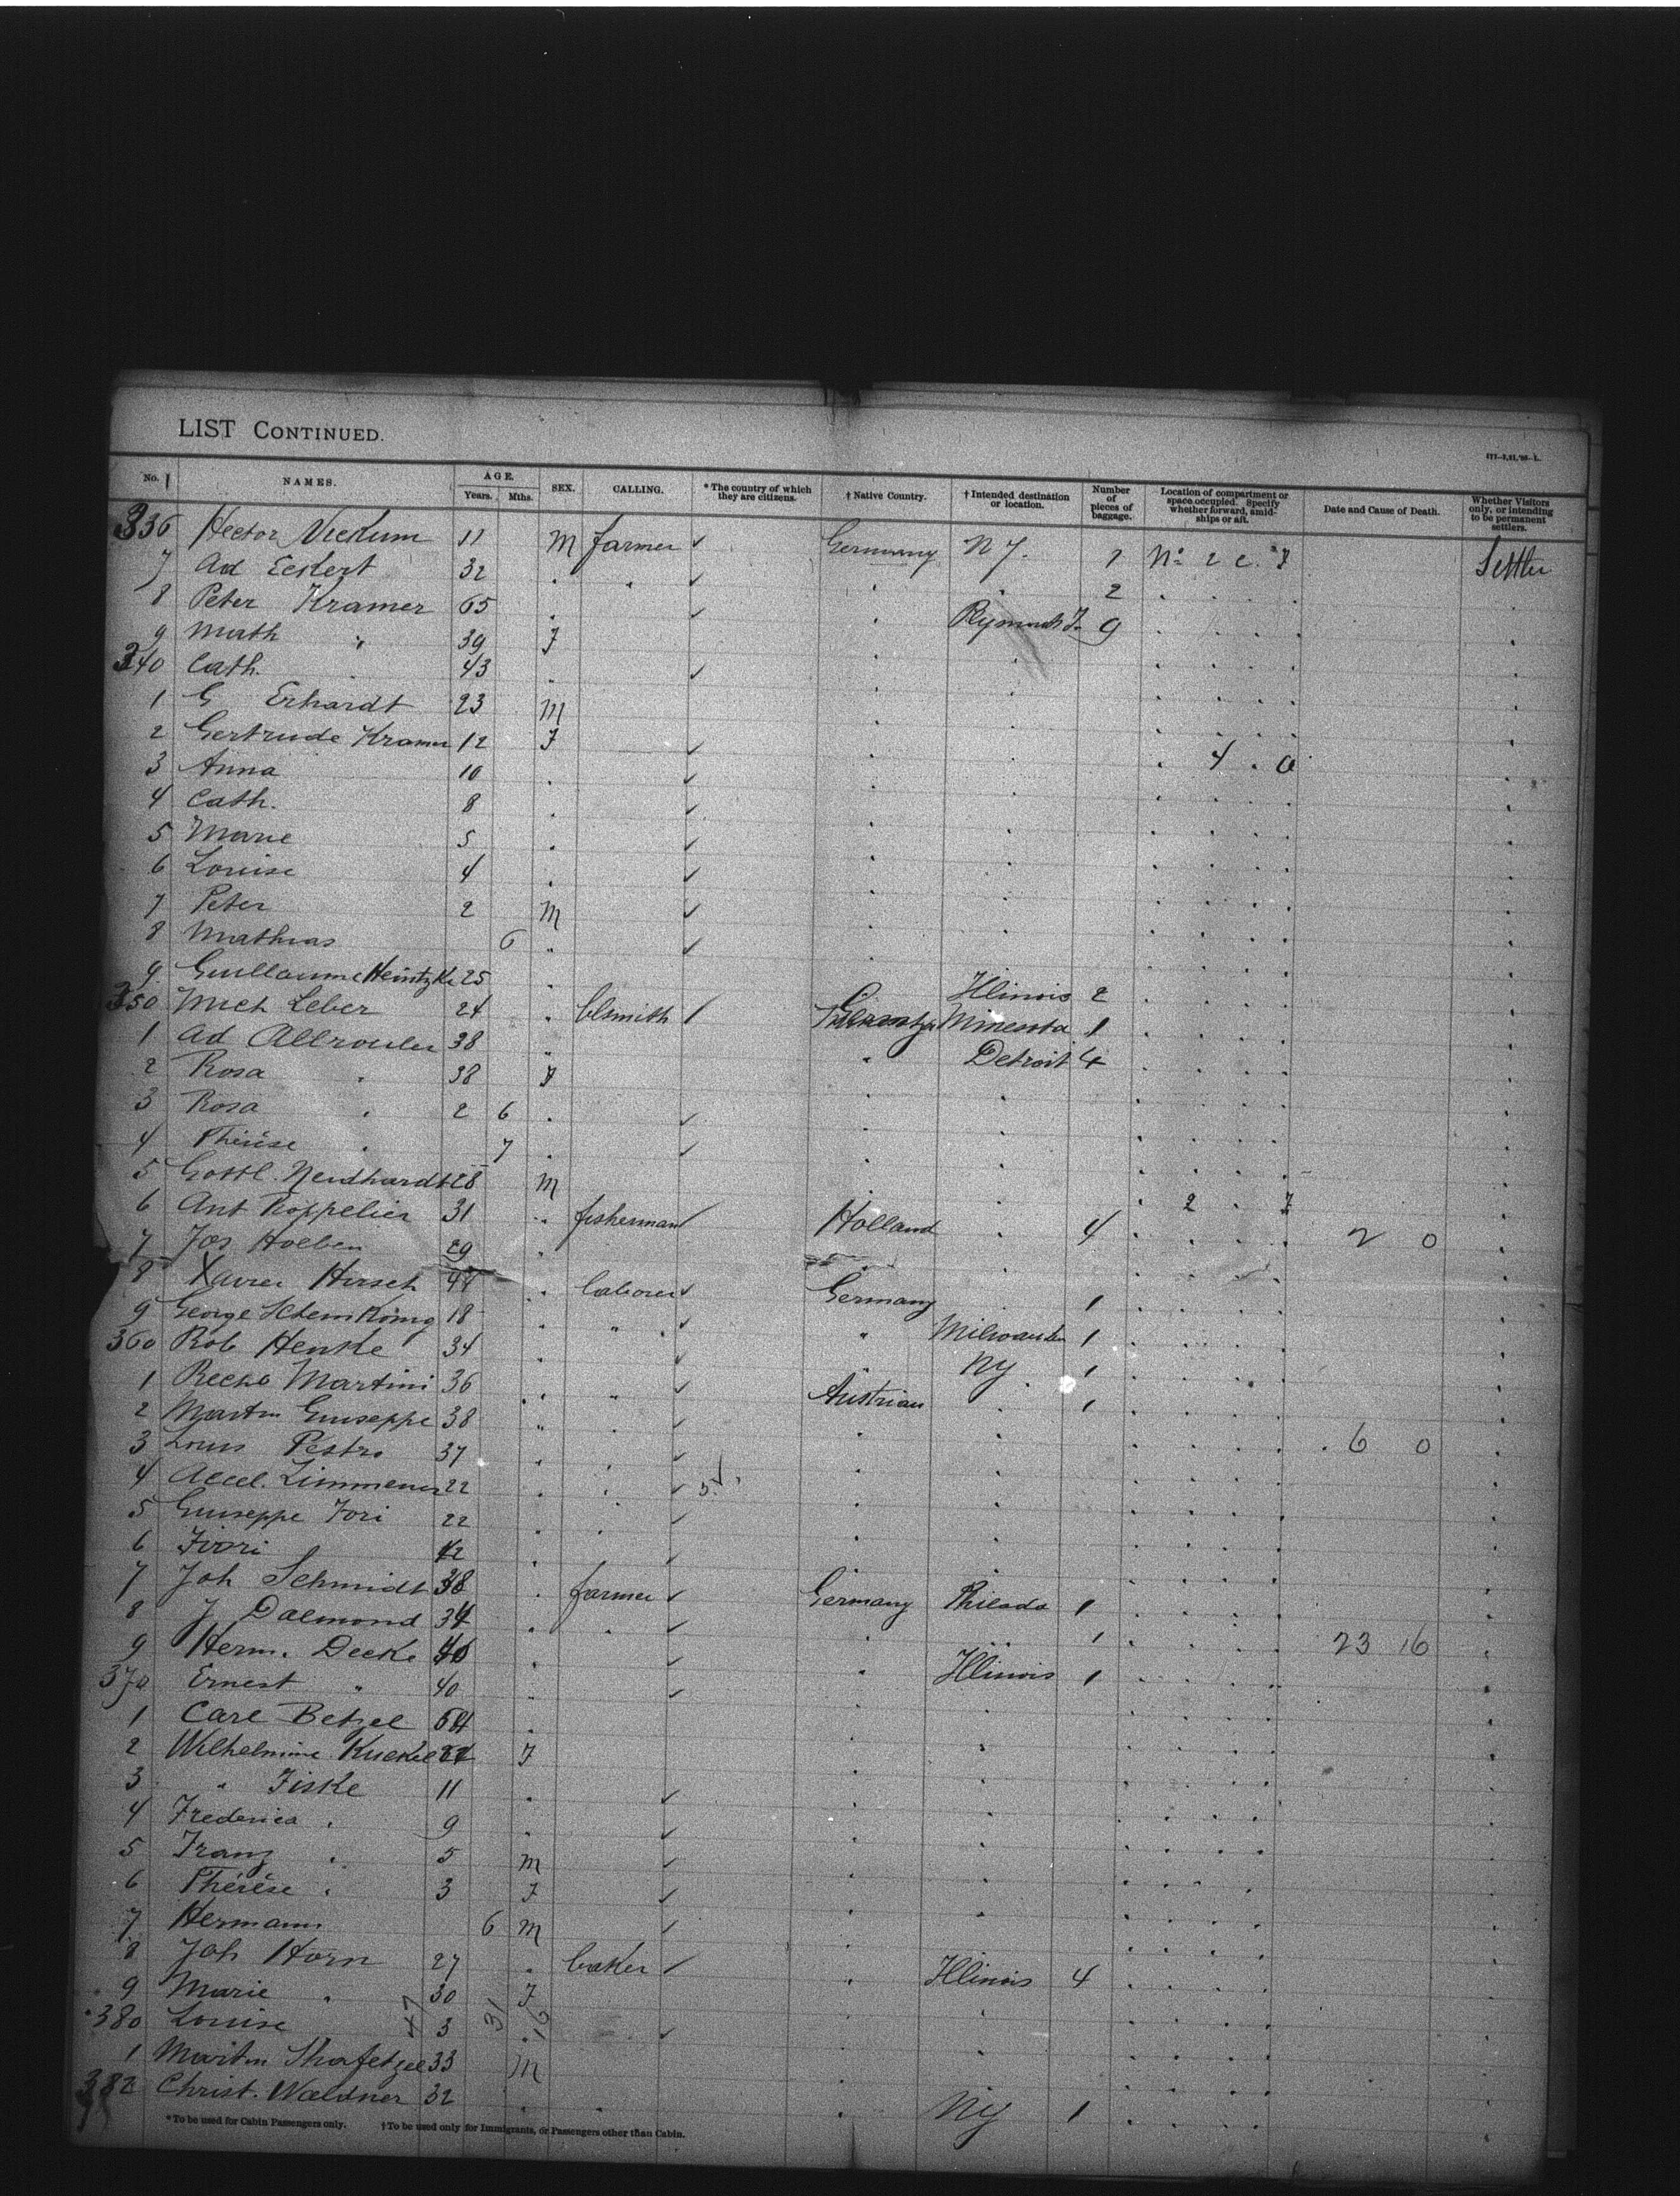 LIST CONTINUED.
No. NAMES. AGE. Years. Mths. SEX. CALLING. * The country of which they are citizens. † Native Country. † Intended destination or location. Number of pieces of baggage. Location of compartment or space occupied. Specify whether forward, amidships or aft. Date and Cause of Death. Whether Visitors only, or intending to be permanent settlers.
336 Hector 11 M farmer ✓ Germany NY. 1 No 2 C. F Settler
7 Ad Eckert 32 . " ✓ . . 2
8 Peter Kramer 65 . ✓ . 9
9 Math " 39 F
340 Cath. . 43 . ✓
1 G Erhardt 23 M
2 Gertrude Kramer 12 F ✓ . 4 . a
3 Anna 10 . ✓
4 Cath. 8 . ✓
5 Marie 5 . ✓
6 Louise 4 . ✓
7 Peter 2 M ✓
8 Mathias 6 " ✓
9 Guillaume Heintzke 25 . Illinois 2
350 Mich Leber 24 . blsmith / Minesota 1
1 Ad 38 " " Detroit 4
2 Rosa . 38 F
3 Rosa . 2 6 . ✓
4 Thérèse . 7 . ✓
5 Gottl. Neidhardt 28 M
6 Ant Roppelier 31 " fisherman ✓ Holland . 4 . 2 . F
7 Jos Hoeben 29 . 2 0
8 Xavier Hirsch . laborer ✓ Germany . 1
9 George 18 . " . ✓ " Milwaukee 1
360 Rob Henke 34 . ✓ NY . 1
1 Martini 36 . " ✓ Austrian . 1
2 Martin Giuseppe 38 " ✓
3 Louis Pestro 37 . . ✓ . 6 0
4 22 . . ✓
5 Giuseppe Fori 22 . . ✓
6 Fiori 42 . ✓
7 Joh Schmidt 38 . farmer ✓ Germany Philada 1
8 J Dalmond 34 . . ✓ . 1
9 Herm. Decke 40 . ✓ . Illinois 1 23 16
370 Ernest " 40 . ✓
1 Carl Betzel 64 .
2 Wilhelmine F
3 " Fiske 11 . ✓
4 Frederica . 9 . ✓
5 Franz . 5 M ✓
6 Thérèse . 3 F ✓
7 Hermann 6 M ✓
8 Joh Horn 27 . baker ✓ . Illinois 4
9 Marie " 30 F
380 Louise 47 3 31 16 . ✓
1 Martin 33 M
382 Christ. Waldner 32 . . . NY 1
* To be used for Cabin Passengers only. † To be used only for Immigrants, or Passengers other than Cabin.